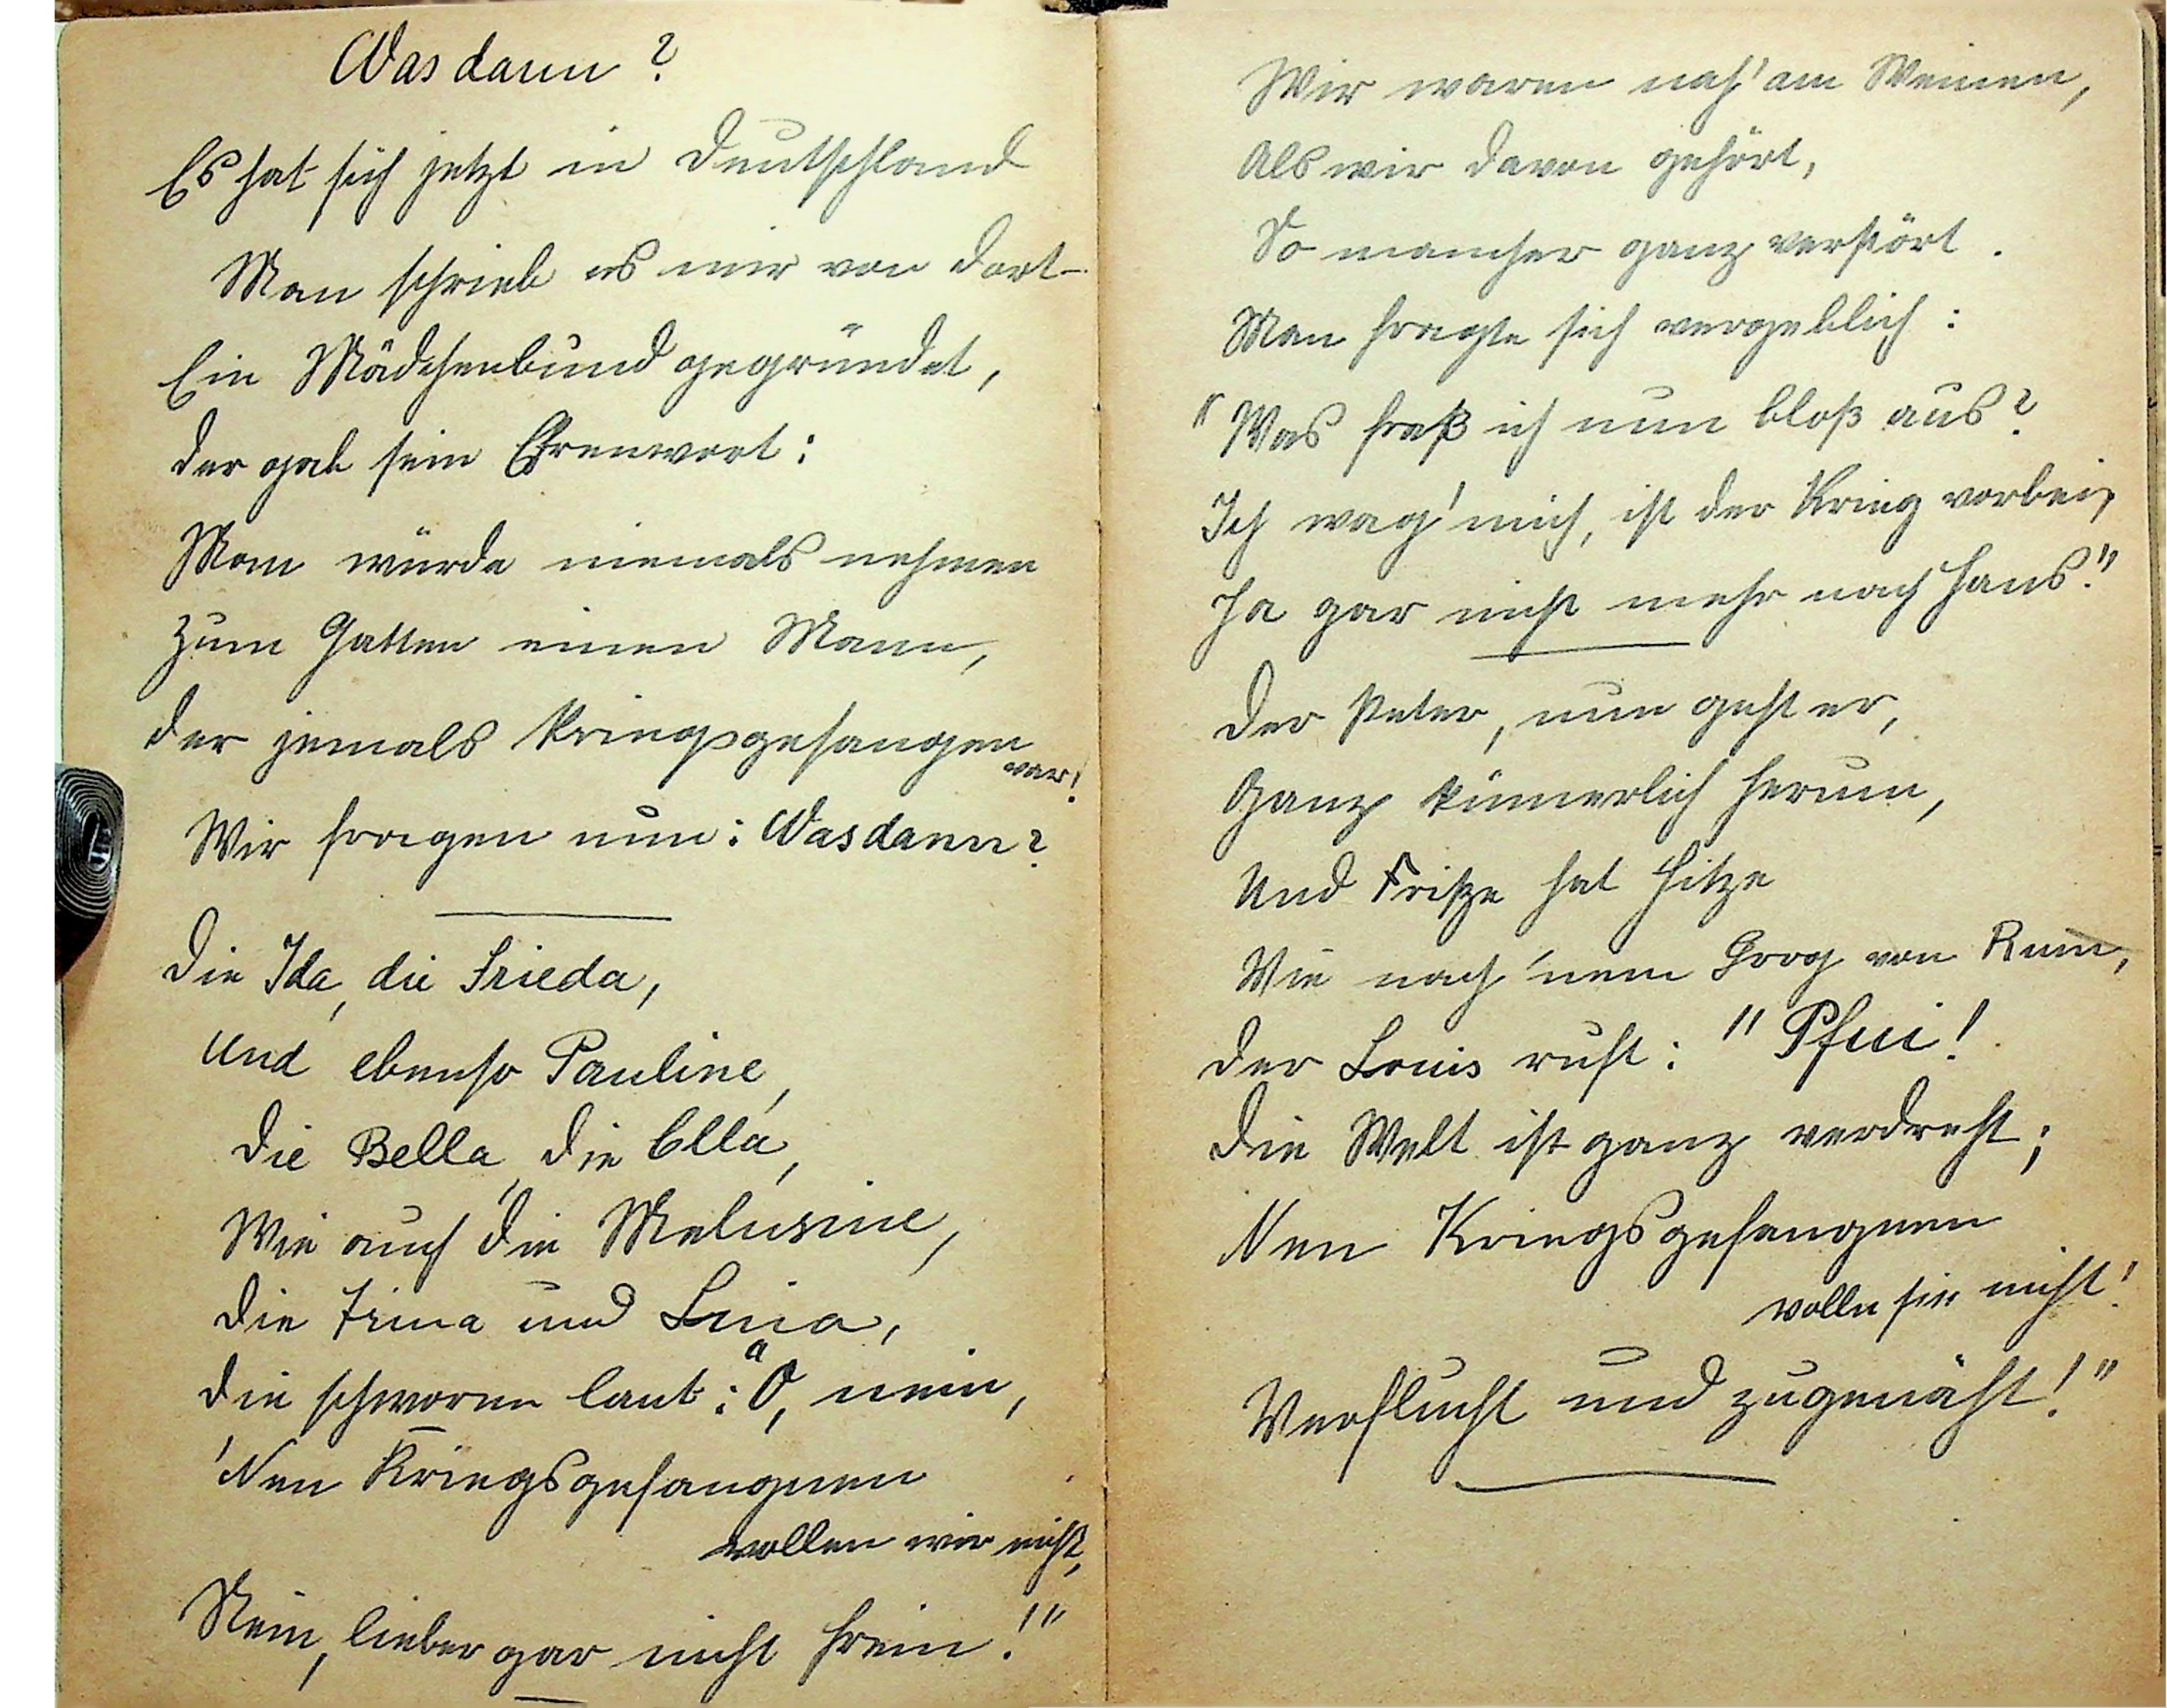 Was dann?
Es hat sich jetzt in Deutschland
Man schrieb es mir von dort-
Ein Mädchenbund gegründet,
der gab sein Ehrenwort:
Man würde niemals nehmen
Zum Gatten einen Mann,
der jemals kriegsgefangen
war!
Wir fragen nun: Was dann?
Die Ida, die Frieda,
und ebenso Pauline,
die Bella, die Ella,
Wie auch die Melusine,
die Trina und Luia,
die schworen laut: "O, nein,
'Nen Kriegsgefangnen
wollen wir nicht,
Nein, lieber gar nicht frein!"
Wir waren nah' am Weinen,
Als wir davon gehört,
So mancher ganz verstört.
Man fragte sich vergeblich:
"Was freß ich nun bloß aus?
Ich wag' mich, ist der Krieg vorbei,
Ja gar nicht mehr nach Haus."
Der Peter, nun geht er,
Ganz kümerlich herum,
Und Fritze hat Hitze
Wie nach 'nem Grog von Rum,
der Louis ruft: "Pfui!
die Welt ist ganz verdreht;
Nen Kriegsgefangnen
wolln sie nicht!
Verflucht und zugenäht!"